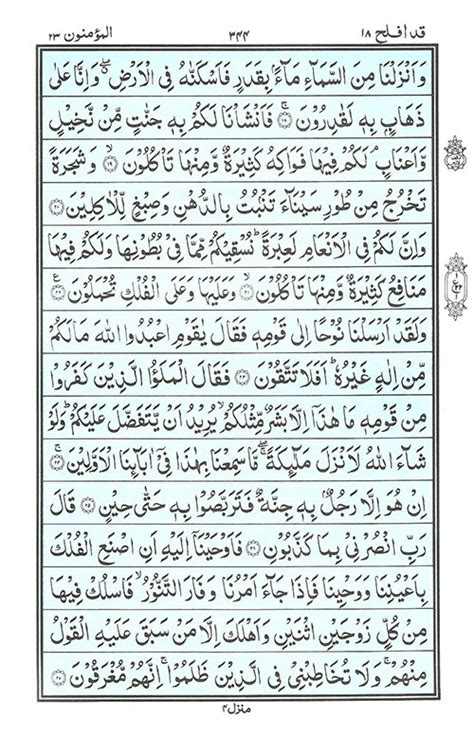 قد افلح ١٨ ٣٤٤ المؤمنون ٢٣
وَاَنْزَلْنَا مِنَ السَّمَآءِ مَآءًۢ بِقَدَرٍ فَاَسْكَنّٰهُ فِی الْاَرْضِ ۖۗ وَاِنَّا عَلٰی
ذَهَابٍۭ بِهٖ لَقٰدِرُوْنَ ۚ﴿١٨﴾ فَاَنْشَاْنَا لَكُمْ بِهٖ جَنّٰتٍ مِّنْ نَّخِیْلٍ
وَّاَعْنَابٍ ۘ لَكُمْ فِیْهَا فَوَاكِهُ كَثِیْرَةٌ وَّمِنْهَا تَاْكُلُوْنَ ۙ﴿١٩﴾ وَشَجَرَةً
تَخْرُجُ مِنْ طُوْرِ سَیْنَآءَ تَنْۢبُتُ بِالدُّهْنِ وَصِبْغٍ لِّلْاٰكِلِیْنَ ﴿٢٠﴾
وَاِنَّ لَكُمْ فِی الْاَنْعَامِ لَعِبْرَةً ؕ نُسْقِیْكُمْ مِّمَّا فِیْ بُطُوْنِهَا وَلَكُمْ فِیْهَا
مَنَافِعُ كَثِیْرَةٌ وَّمِنْهَا تَاْكُلُوْنَ ۙ﴿٢١﴾ وَعَلَیْهَا وَعَلَی الْفُلْكِ تُحْمَلُوْنَ ﴿٢٢﴾ ع
وَلَقَدْ اَرْسَلْنَا نُوْحًا اِلٰی قَوْمِهٖ فَقَالَ یٰقَوْمِ اعْبُدُوا اللّٰهَ مَا لَكُمْ
مِّنْ اِلٰهٍ غَیْرُهٗ ؕ اَفَلَا تَتَّقُوْنَ ﴿٢٣﴾ فَقَالَ الْمَلَؤُا الَّذِیْنَ كَفَرُوْا
مِنْ قَوْمِهٖ مَا هٰذَاۤ اِلَّا بَشَرٌ مِّثْلُكُمْ ۙ یُرِیْدُ اَنْ یَّتَفَضَّلَ عَلَیْكُمْ ؕ وَلَوْ
شَآءَ اللّٰهُ لَاَنْزَلَ مَلٰٓئِكَةً ۖۚ مَّا سَمِعْنَا بِهٰذَا فِیْۤ اٰبَآئِنَا الْاَوَّلِیْنَ ۚ﴿٢٤﴾
اِنْ هُوَ اِلَّا رَجُلٌۢ بِهٖ جِنَّةٌ فَتَرَبَّصُوْا بِهٖ حَتّٰی حِیْنٍ ﴿٢٥﴾ قَالَ
رَبِّ انْصُرْنِیْ بِمَا كَذَّبُوْنِ ﴿٢٦﴾ فَاَوْحَیْنَاۤ اِلَیْهِ اَنِ اصْنَعِ الْفُلْكَ
بِاَعْیُنِنَا وَوَحْیِنَا فَاِذَا جَآءَ اَمْرُنَا وَفَارَ التَّنُّوْرُ ۙ فَاسْلُكْ فِیْهَا
مِنْ كُلٍّ زَوْجَیْنِ اثْنَیْنِ وَاَهْلَكَ اِلَّا مَنْ سَبَقَ عَلَیْهِ الْقَوْلُ
مِنْهُمْ ۚ وَلَا تُخَاطِبْنِیْ فِی الَّذِیْنَ ظَلَمُوْا ۚ اِنَّهُمْ مُّغْرَقُوْنَ ﴿٢٧﴾
منزل ٤